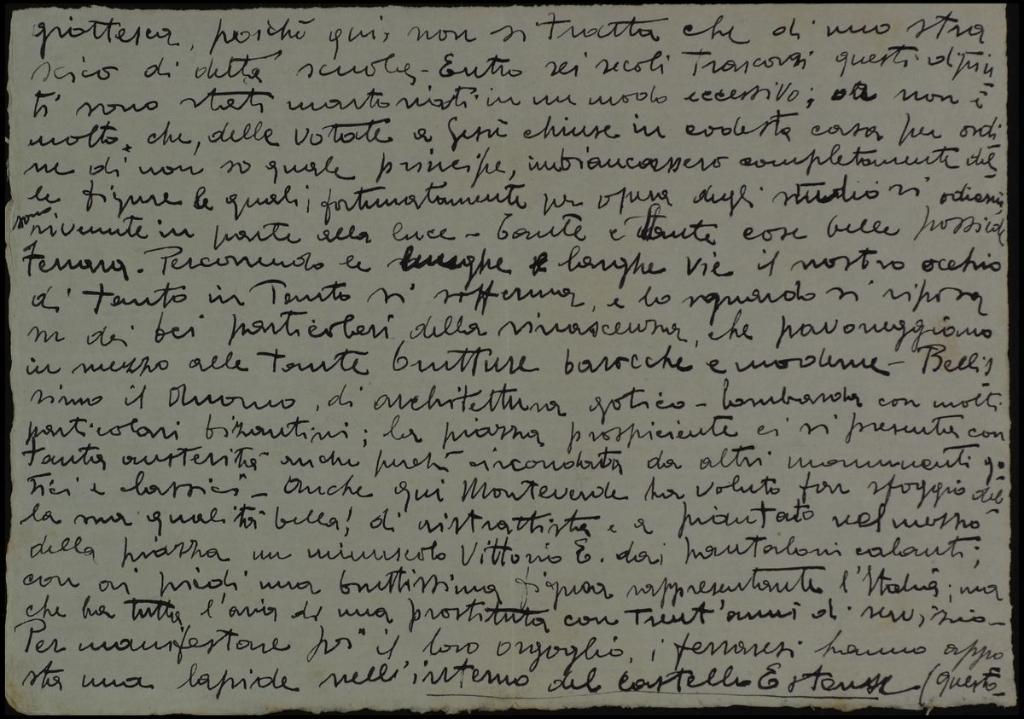 giottesca, poichè qui, non si tratta che di uno stra
scico di detta scuola - Entro sei secoli trascorsi questi dipin
ti sono stati martoriati in un modo eccessivo; non è
molto, che, delle votate a Gesù chiuse in codesta casa per ordi
ne di non so quale principe, imbiancassero completamente del
le figure le quali, fortunatamente per opera degli studiosi odierni,
sono rivenute in parte alla luce - Tante e tante cose belle possiede
Ferrara. Percorrendo le lunghe e larghe vie il nostro occhio
di tanto in tanto si sofferma, e lo sguardo si riposa
su dei bei particolari della rinascenza, che pavoneggiano
in mezzo alle tante brutture barocche e moderne - Bellis
simo il Duomo, di architettura gotico-lombarda con molti
particolari bizantini; la piazza prospiciente ci si presenta con
tanta austerità anche perchè circondata da altri monumenti go
tici e classici - Anche qui Monteverde ha voluto far sfoggio del
la sua qualità bella! di ristrattista e a piantato nel mezzo
della piazza un minuscolo Vittorio E. dai pantaloni calanti;
con ai piedi una bruttissima figura rappresentante l'Italia; ma
che ha tutta l'aria di una prostituta con trent'anni di servizio -
Per manifestare poi il loro orgoglio, i ferraresi hanno appo
sta una lapide nell'interno del castello Estense (questa